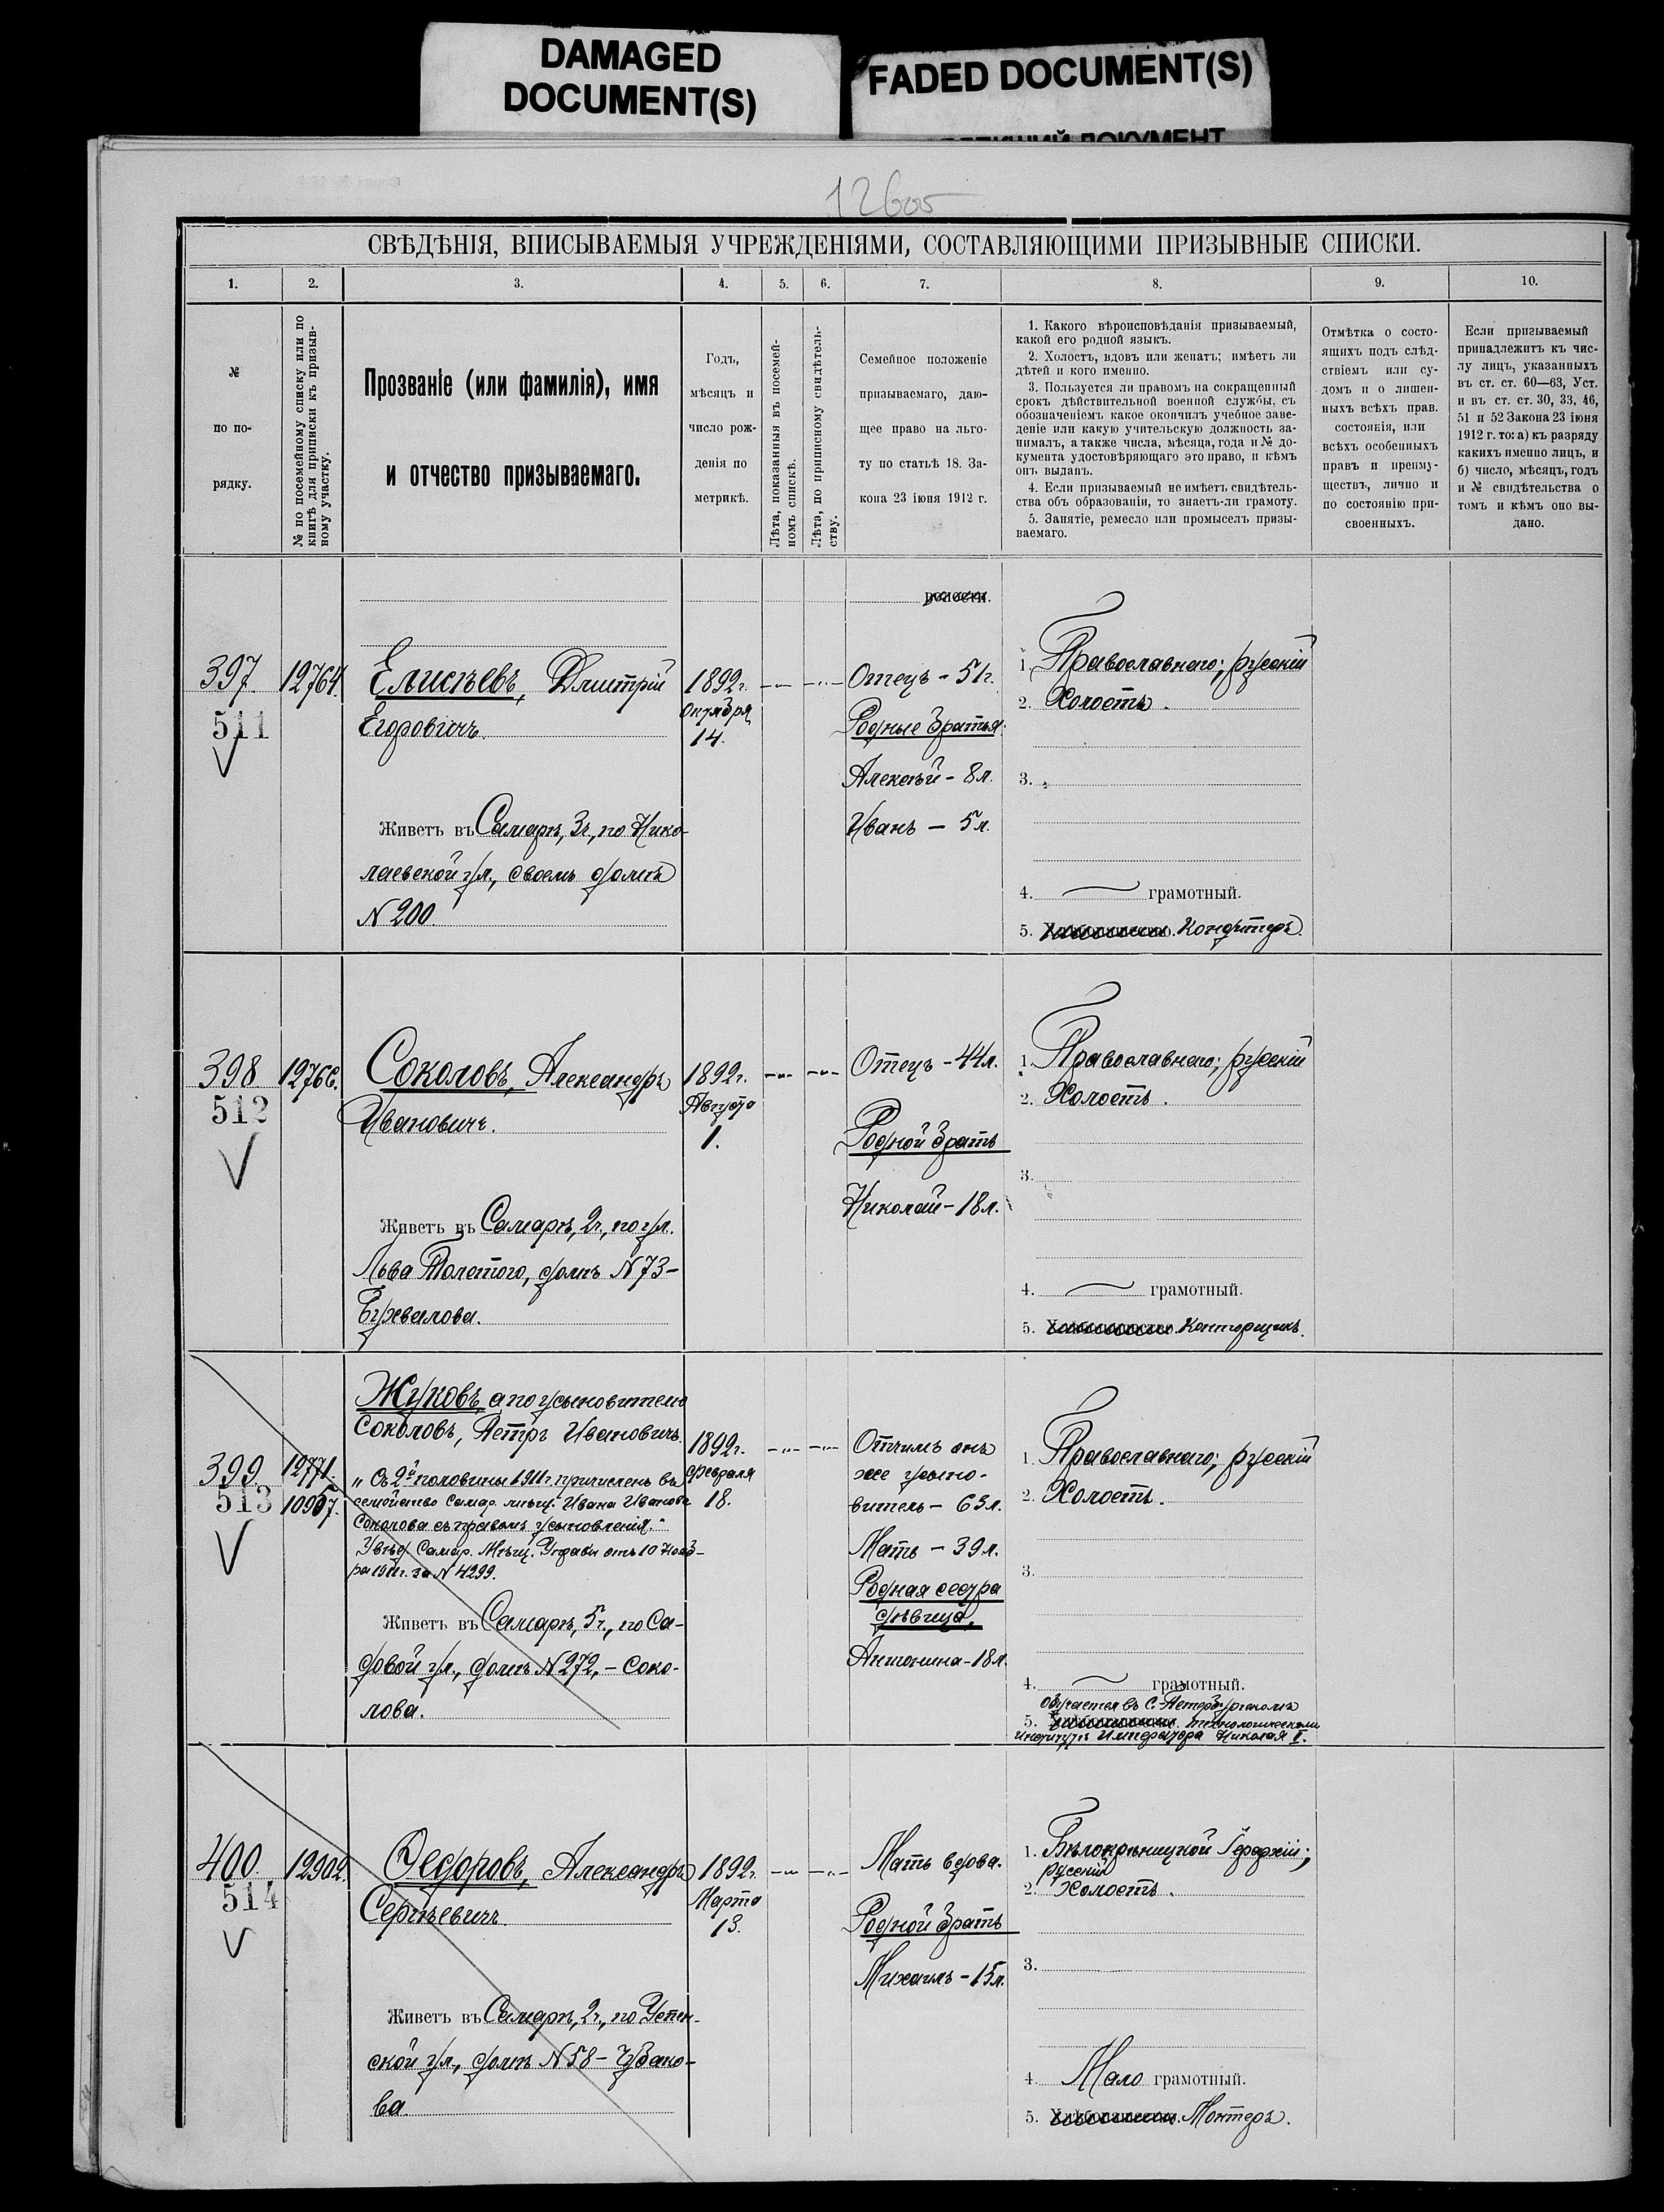 DAMAGED
DOCUMENT(S)
FADED DOCUMENT(S)
ДОКУМЕНТ
СВѢДѢНІЯ, ВПИСЫВАЕМЫЯ УЧРЕЖДЕНІЯМИ, СОСТАВЛЯЮЩИМИ ПРИЗЫВНЫЕ СПИСКИ.
1. 2. 3. 4. 5. 6. 7. 8. 9. 10.
№
по по-
рядку.
№ по посемейному списку или по
книгѣ для приписки къ призыв-
ному участку.
Прозваніе (или фамилія), имя
и отчество призываемаго.
Годъ,
мѣсяцъ и
число рож-
денія по
метрикѣ.
Лѣта, показанныя въ посемей-
номъ спискѣ.
Лѣта, по приписному свидѣтель-
ству.
Семейное положеніе
призываемаго, даю-
щее право на льго-
ту по статьѣ 18. За-
кона 23 іюня 1912 г.
1. Какого вѣроисповѣданія призываемый,
какой его родной языкъ.
2. Холостъ, вдовъ или женатъ; имѣетъ ли
дѣтей и кого именно.
3. Пользуется ли правомъ на сокращенный
срокъ дѣйствительной военной службы, съ
обозначеніемъ какое окончилъ учебное заве-
деніе или какую учительскую должность за-
нималъ, а также числа, мѣсяца, года и № до-
кумента удостовѣряющаго это право, и кѣмъ
онъ выданъ.
4. Если призываемый не имѣетъ свидѣтель-
ства объ образованіи, то знаетъ-ли грамоту.
5. Занятіе, ремесло или промыселъ призы-
ваемаго.
Отмѣтка о состо-
ящихъ подъ слѣд-
ствіемъ или су-
домъ и о лишен-
ныхъ всѣхъ прав.
состоянія, или
всѣхъ особенныхъ
правъ и преиму-
ществъ, лично и
по состоянію при-
своенныхъ.
Если призываемый
принадлежитъ къ чис-
лу лицъ, указанныхъ
въ ст. ст. 60—63, Уст.
и въ ст. ст. 30, 33, 46,
51 и 52 Закона 23 іюня
1912 г. то: а) къ разряду
какихъ именно лицъ, и
б) число, мѣсяцъ, годъ
и № свидѣтельства о
томъ и кѣмъ оно вы-
дано.
волости.
397.
511
12764.
Елисѣевъ, Дмитрій
Егоровичъ.
Живетъ въ Самарѣ, 3ч., по Нико-
лаевской ул., своемъ домѣ
N 200.
1892г.
Октября
14.
Отецъ - 51г.
Родные братья:
Алексѣй - 8л.
Иванъ - 5л.
1. Православнаго; русскій
2. Холостъ.
3.
4. грамотный.
5. Кондитеръ.
398
512
12766.
Соколовъ, Александръ
Ивановичъ.
Живетъ въ Самарѣ, 2ч., по ул.
Льва Толстого, домъ N 73-
1892г.
Августа
1.
Отецъ - 44л.
Родной братъ
Николай - 18л.
1. Православнаго; русскій
2. Холостъ.
3.
4. грамотный.
5. Конторщикъ.
399.
513
12771.
Жуковъ, а по усыновителю
Соколовъ, Петръ Ивановичъ.
„Съ 2й половины 1911г. причисленъ въ
семейство Самар. мѣщ. Ивана Иванова
Соколова съ правомъ усыновленія."
Увѣд. Самар. Мѣщ. Управы отъ 10 Нояб-
ря 1911г. за N 4299.
Живетъ въ Самарѣ, 5ч., по Са-
довой ул., домъ N 272, - Соко-
лова.
1892г.
Февраля
18.
Отчимъ онъ
же усыно-
витель - 63л.
Мать - 39л.
Родная сестра
дѣвица,
Антонина - 18л.
1. Православнаго; русскій
2. Холостъ.
3.
4. грамотный.
обучается въ С.-Петербургскомъ
5. Технологическомъ
Институтѣ Императора Николая I.
400.
514
12902.
Ѳедоровъ, Александръ
Сергѣевичъ.
Живетъ въ Самарѣ, 2ч., по Успен-
ской ул., домъ N 58 -
1892г.
Марта
13.
Мать вдова.
Родной братъ
Михаилъ - 15л.
1. Бѣлокриницкой Іерархіи;
русскій
2. Холостъ.
3.
4. Мало грамотный.
5. Монтеръ.